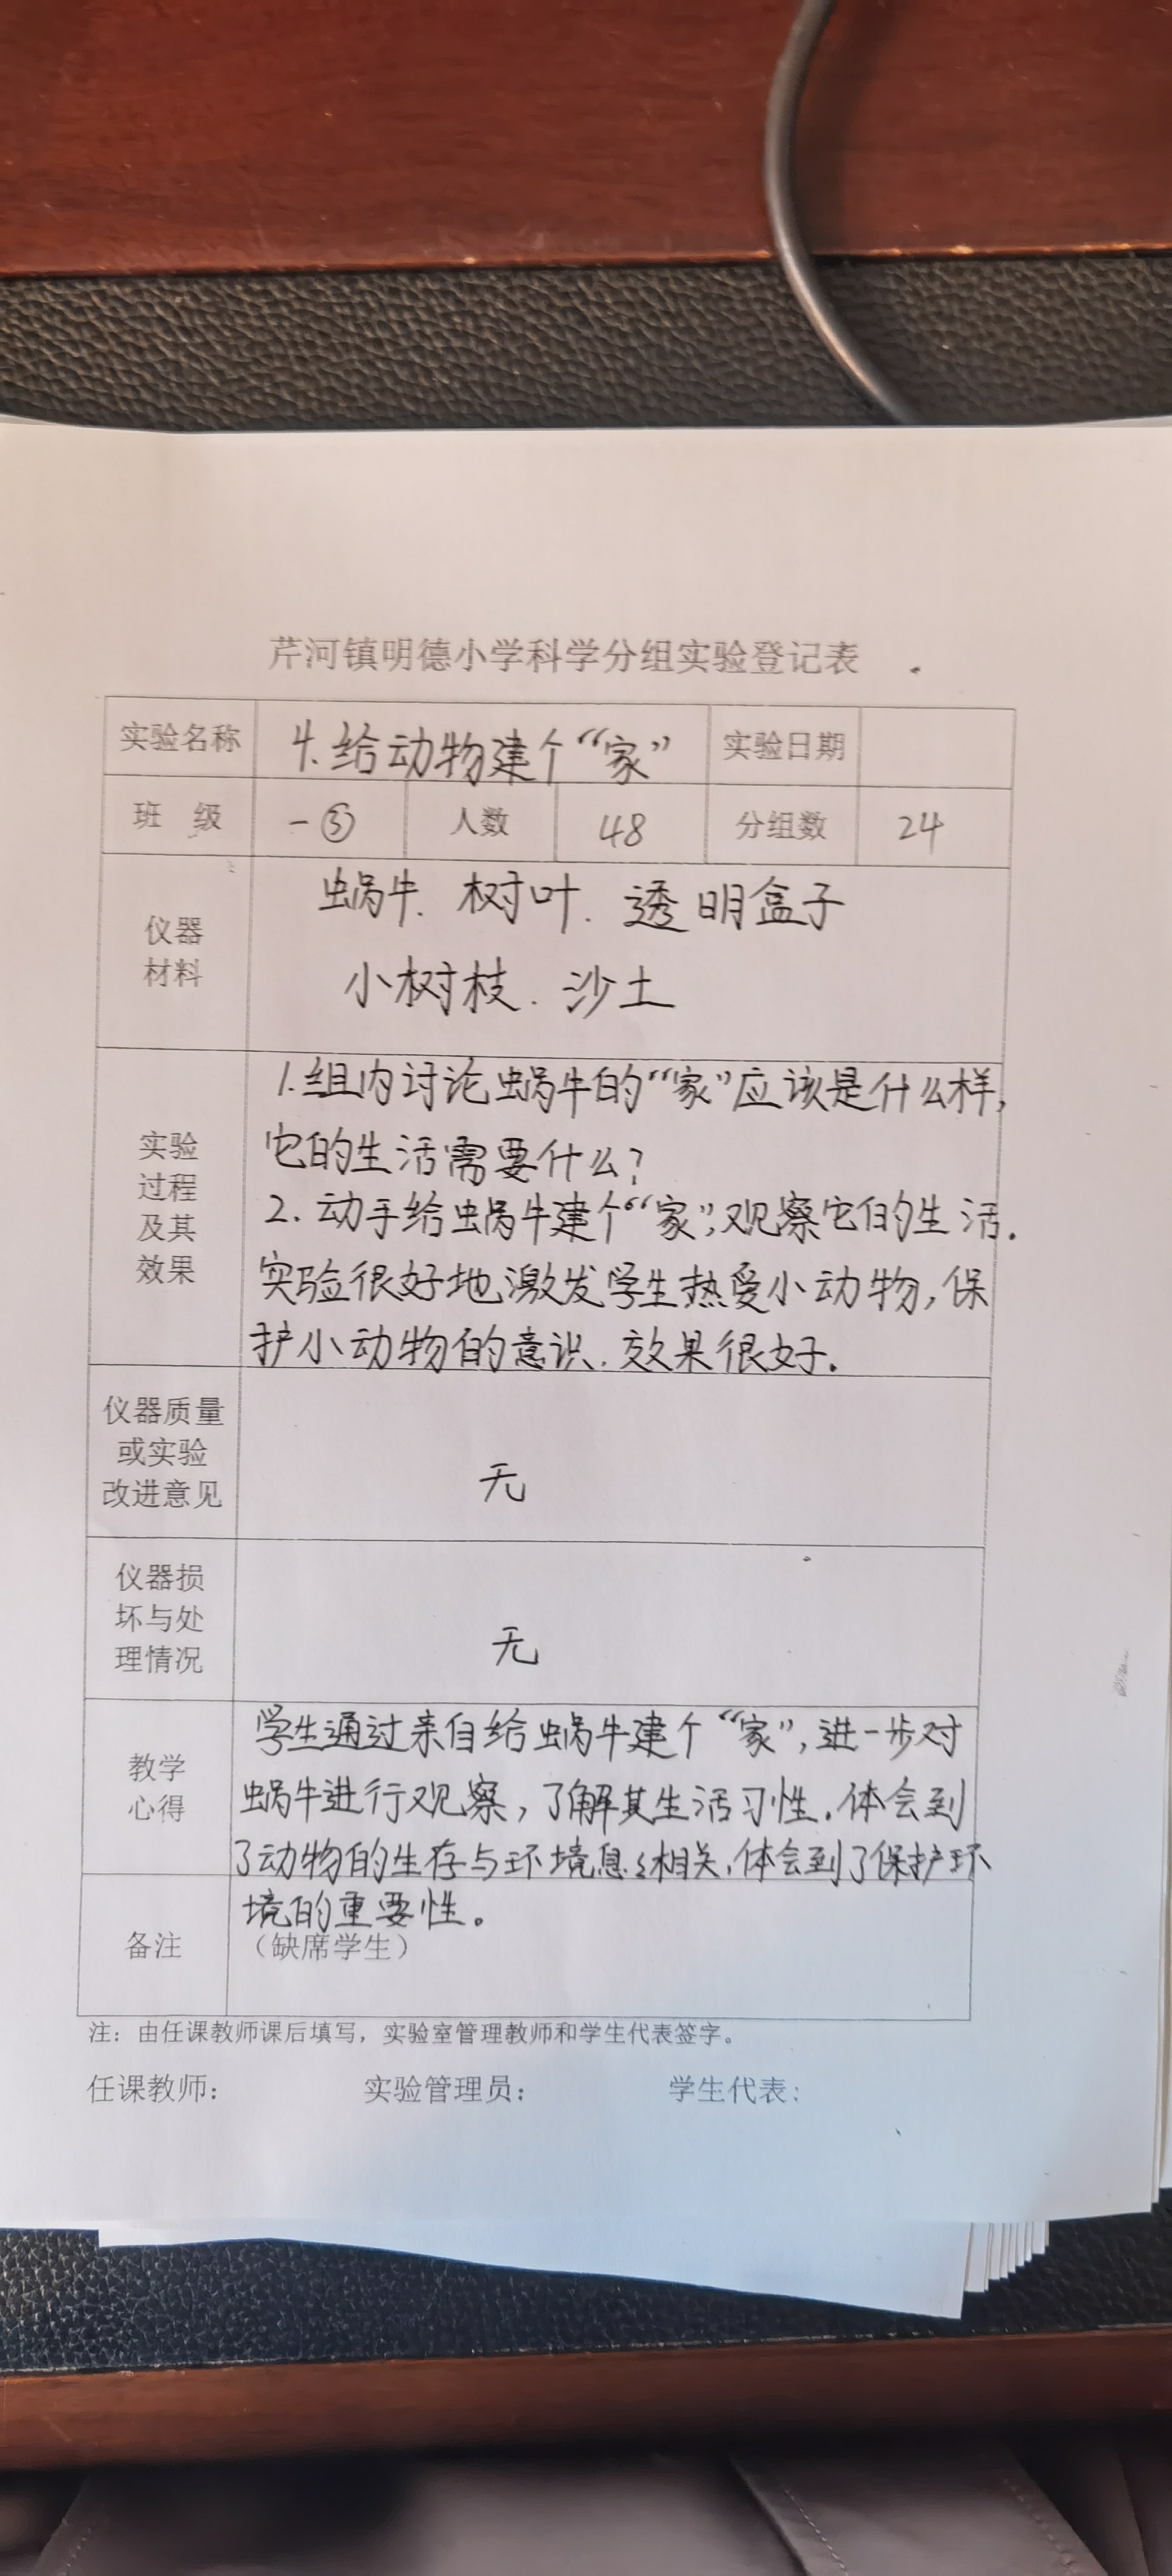 芹河镇明德小学科学分组实验登记表
实验名称 4.给动物建个“家” 实验日期
班 级 一⑤ 人数 48 分组数 24
仪器
材料
蜗牛、树叶、透明盒子
小树枝、沙土
实验
过程
及其
效果
1.组内讨论蜗牛的“家”应该是什么样,
它的生活需要什么?
2.动手给蜗牛建个“家”,观察它的生活.
实验很好地激发学生热爱小动物,保
护小动物的意识.效果很好.
仪器质量
或实验
改进意见
无
仪器损
坏与处
理情况
无
教学
心得
学生通过亲自给蜗牛建个“家”,进一步对
蜗牛进行观察,了解其生活习性.体会到
了动物的生存与环境息息相关,体会到了保护环
境的重要性。
备注 (缺席学生)
注:由任课教师课后填写,实验室管理教师和学生代表签字。
任课教师: 实验管理员: 学生代表: